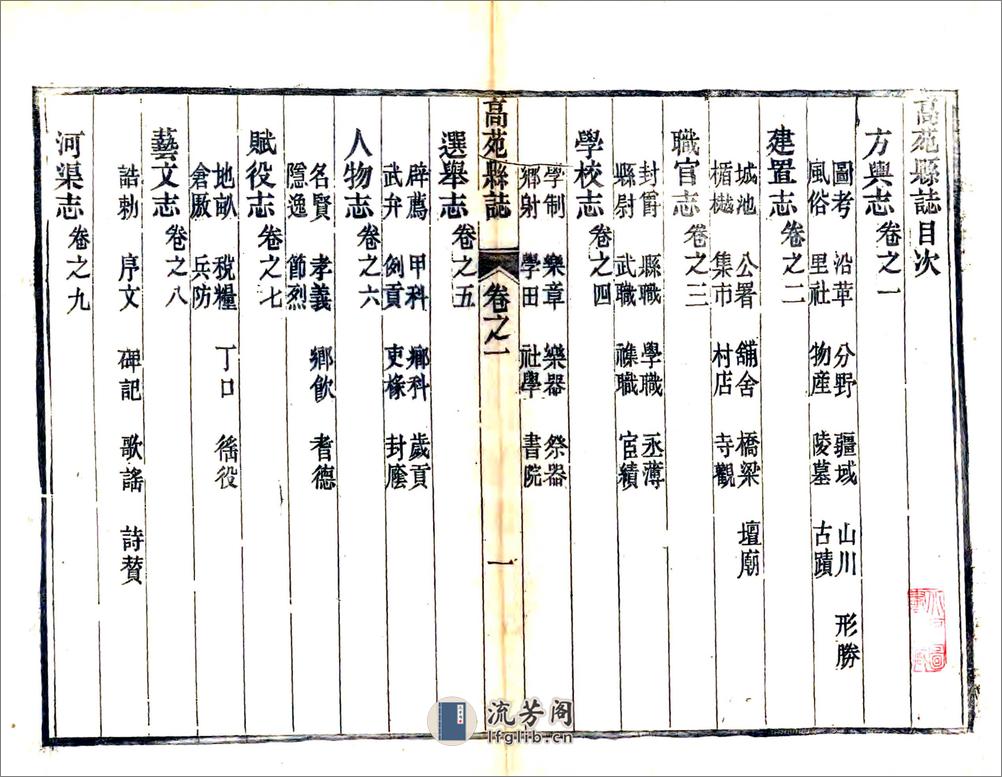 高苑縣誌目次
方輿志 卷之一
圖考 沿革 分野 疆域 山川 形勝
風俗 里社 物産 陵墓 古蹟
建置志 卷之二
城池 公署 舖舍 橋梁 壇廟
楯樾 集市 村店 寺觀
職官志 卷之三
封爵 縣職 學職 丞薄
縣尉 武職 襍職 宦績
學校志 卷之四
學制 樂章 樂器 祭器
鄉射 學田 社學 書院
高苑縣誌 卷之一 一
選舉志 卷之五
辟薦 甲科 鄉科 歲貢
武弁 例貢 吏椽 封廕
人物志 卷之六
名賢 孝義 鄉飲 耆德
隱逸 節烈
賦役志 卷之七
地畝 稅糧 丁口 徭役
倉廒 兵防
藝文志 卷之八
誥勅 序文 碑記 歌謠 詩賛
河渠志 卷之九
流芳阁
lfglib.cn